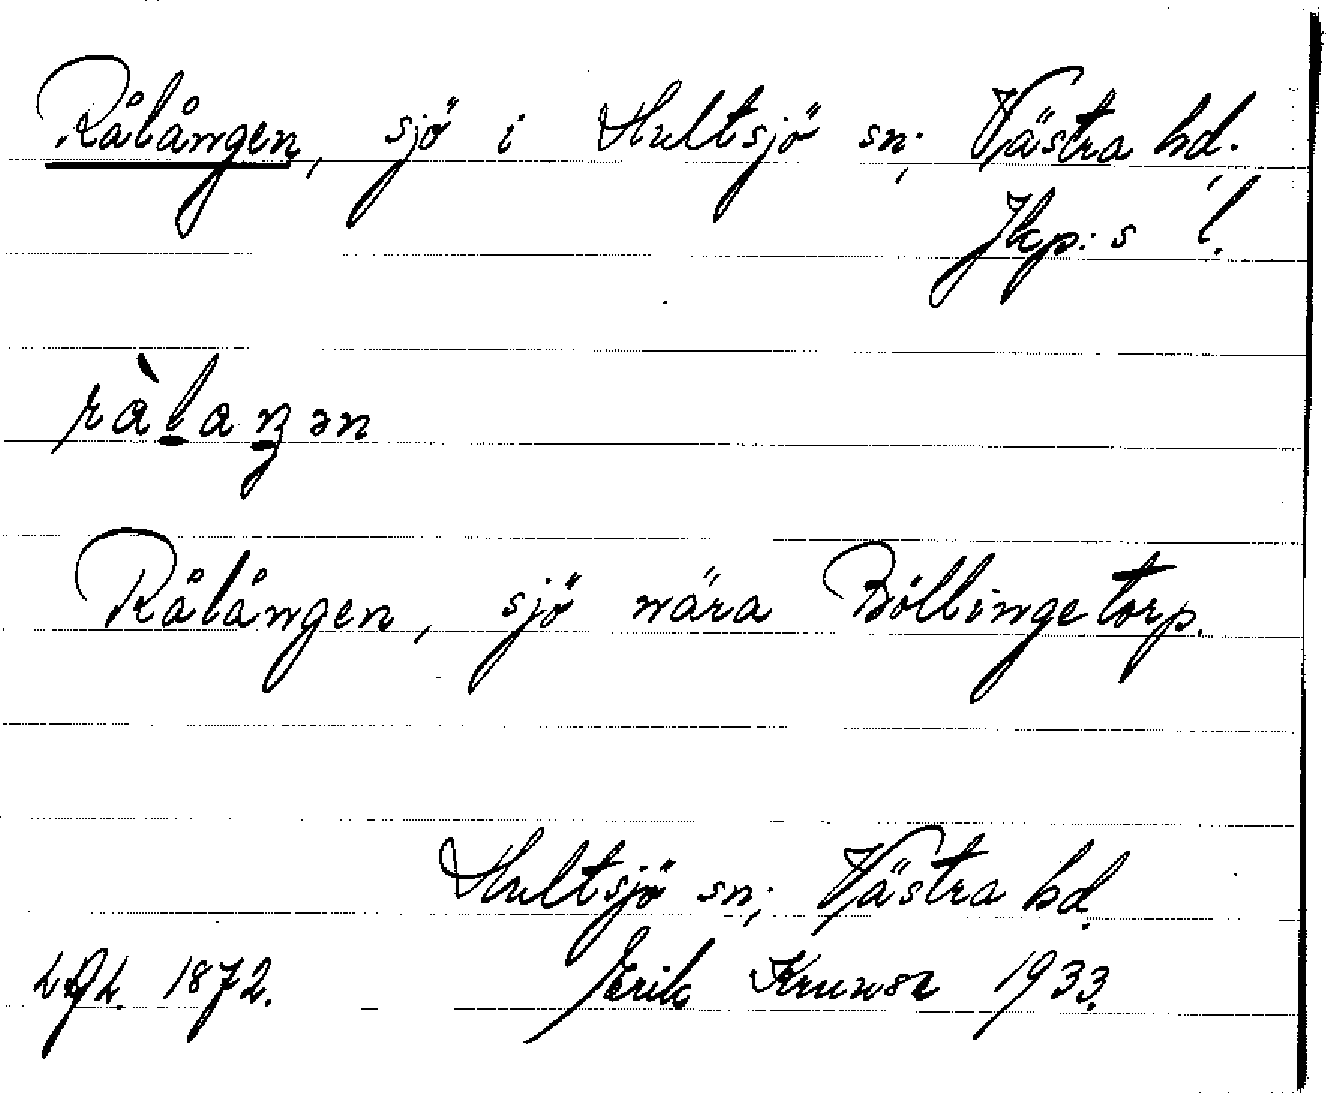 Rålången, sjö i Hultsjö sn; Västra hd.
Jkp:s l.
ràlaŋən
Rålången, sjö nära Böllingetorp.
Hultsjö sn; Västra hd.
1872. Erik 1933.